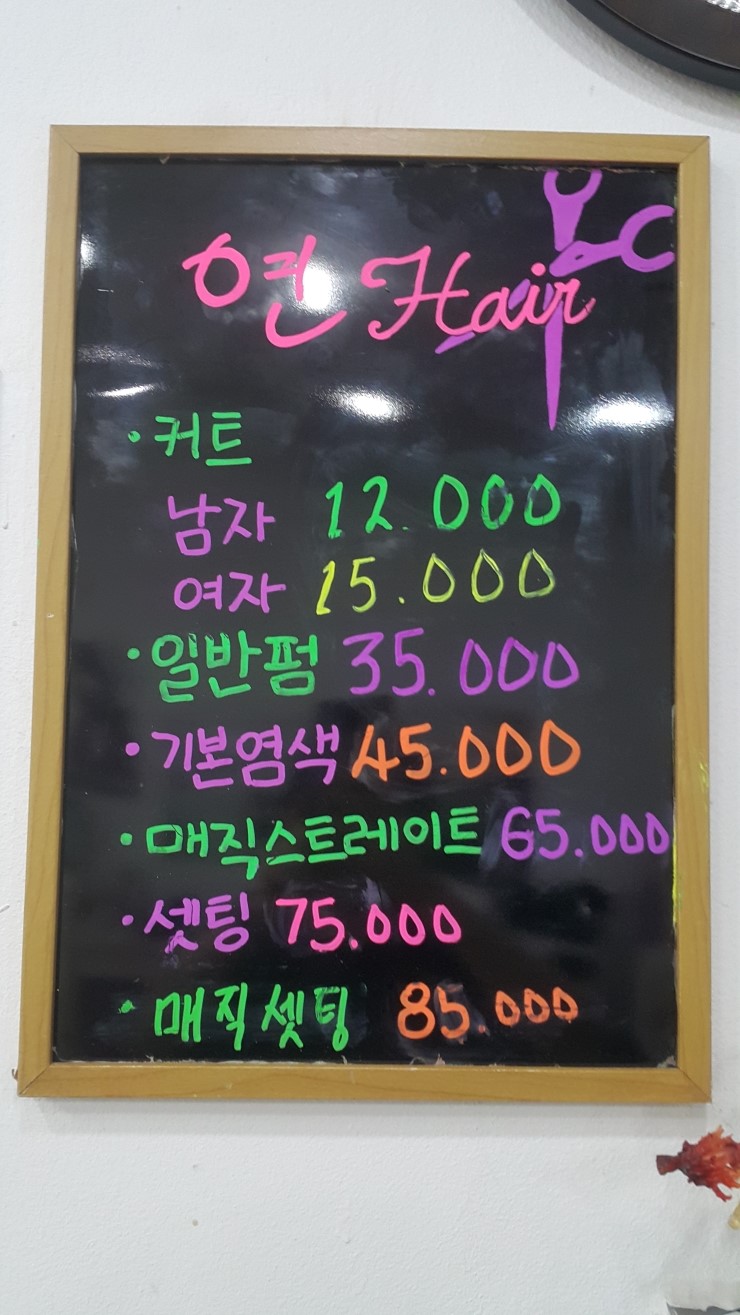 연 Hair
·커트
남자 12.000
여자 15.000
·일반펌 35.000
·기본염색 45.000
·매직스트레이트 65.000
·셋팅 75.000
·매직셋팅 85.000